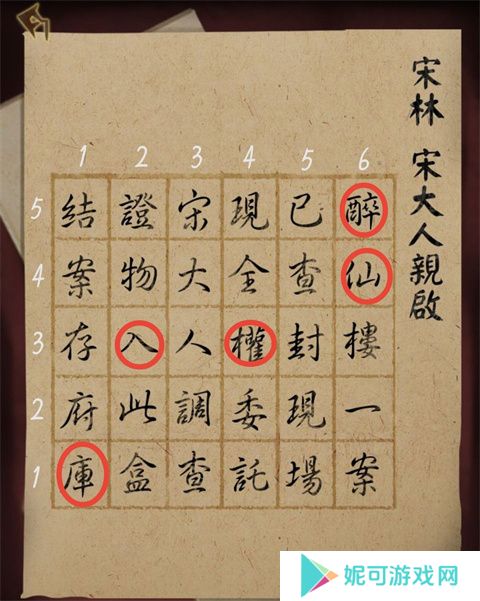 宋林 宋大人親啟
1 2 3 4 5 6
5 結 證 宋 現 已 醉
4 案 物 大 全 查 仙
3 存 入 人 權 封 樓
2 府 此 調 委 現 一
1 庫 盒 查 託 場 案
妮可游戏网